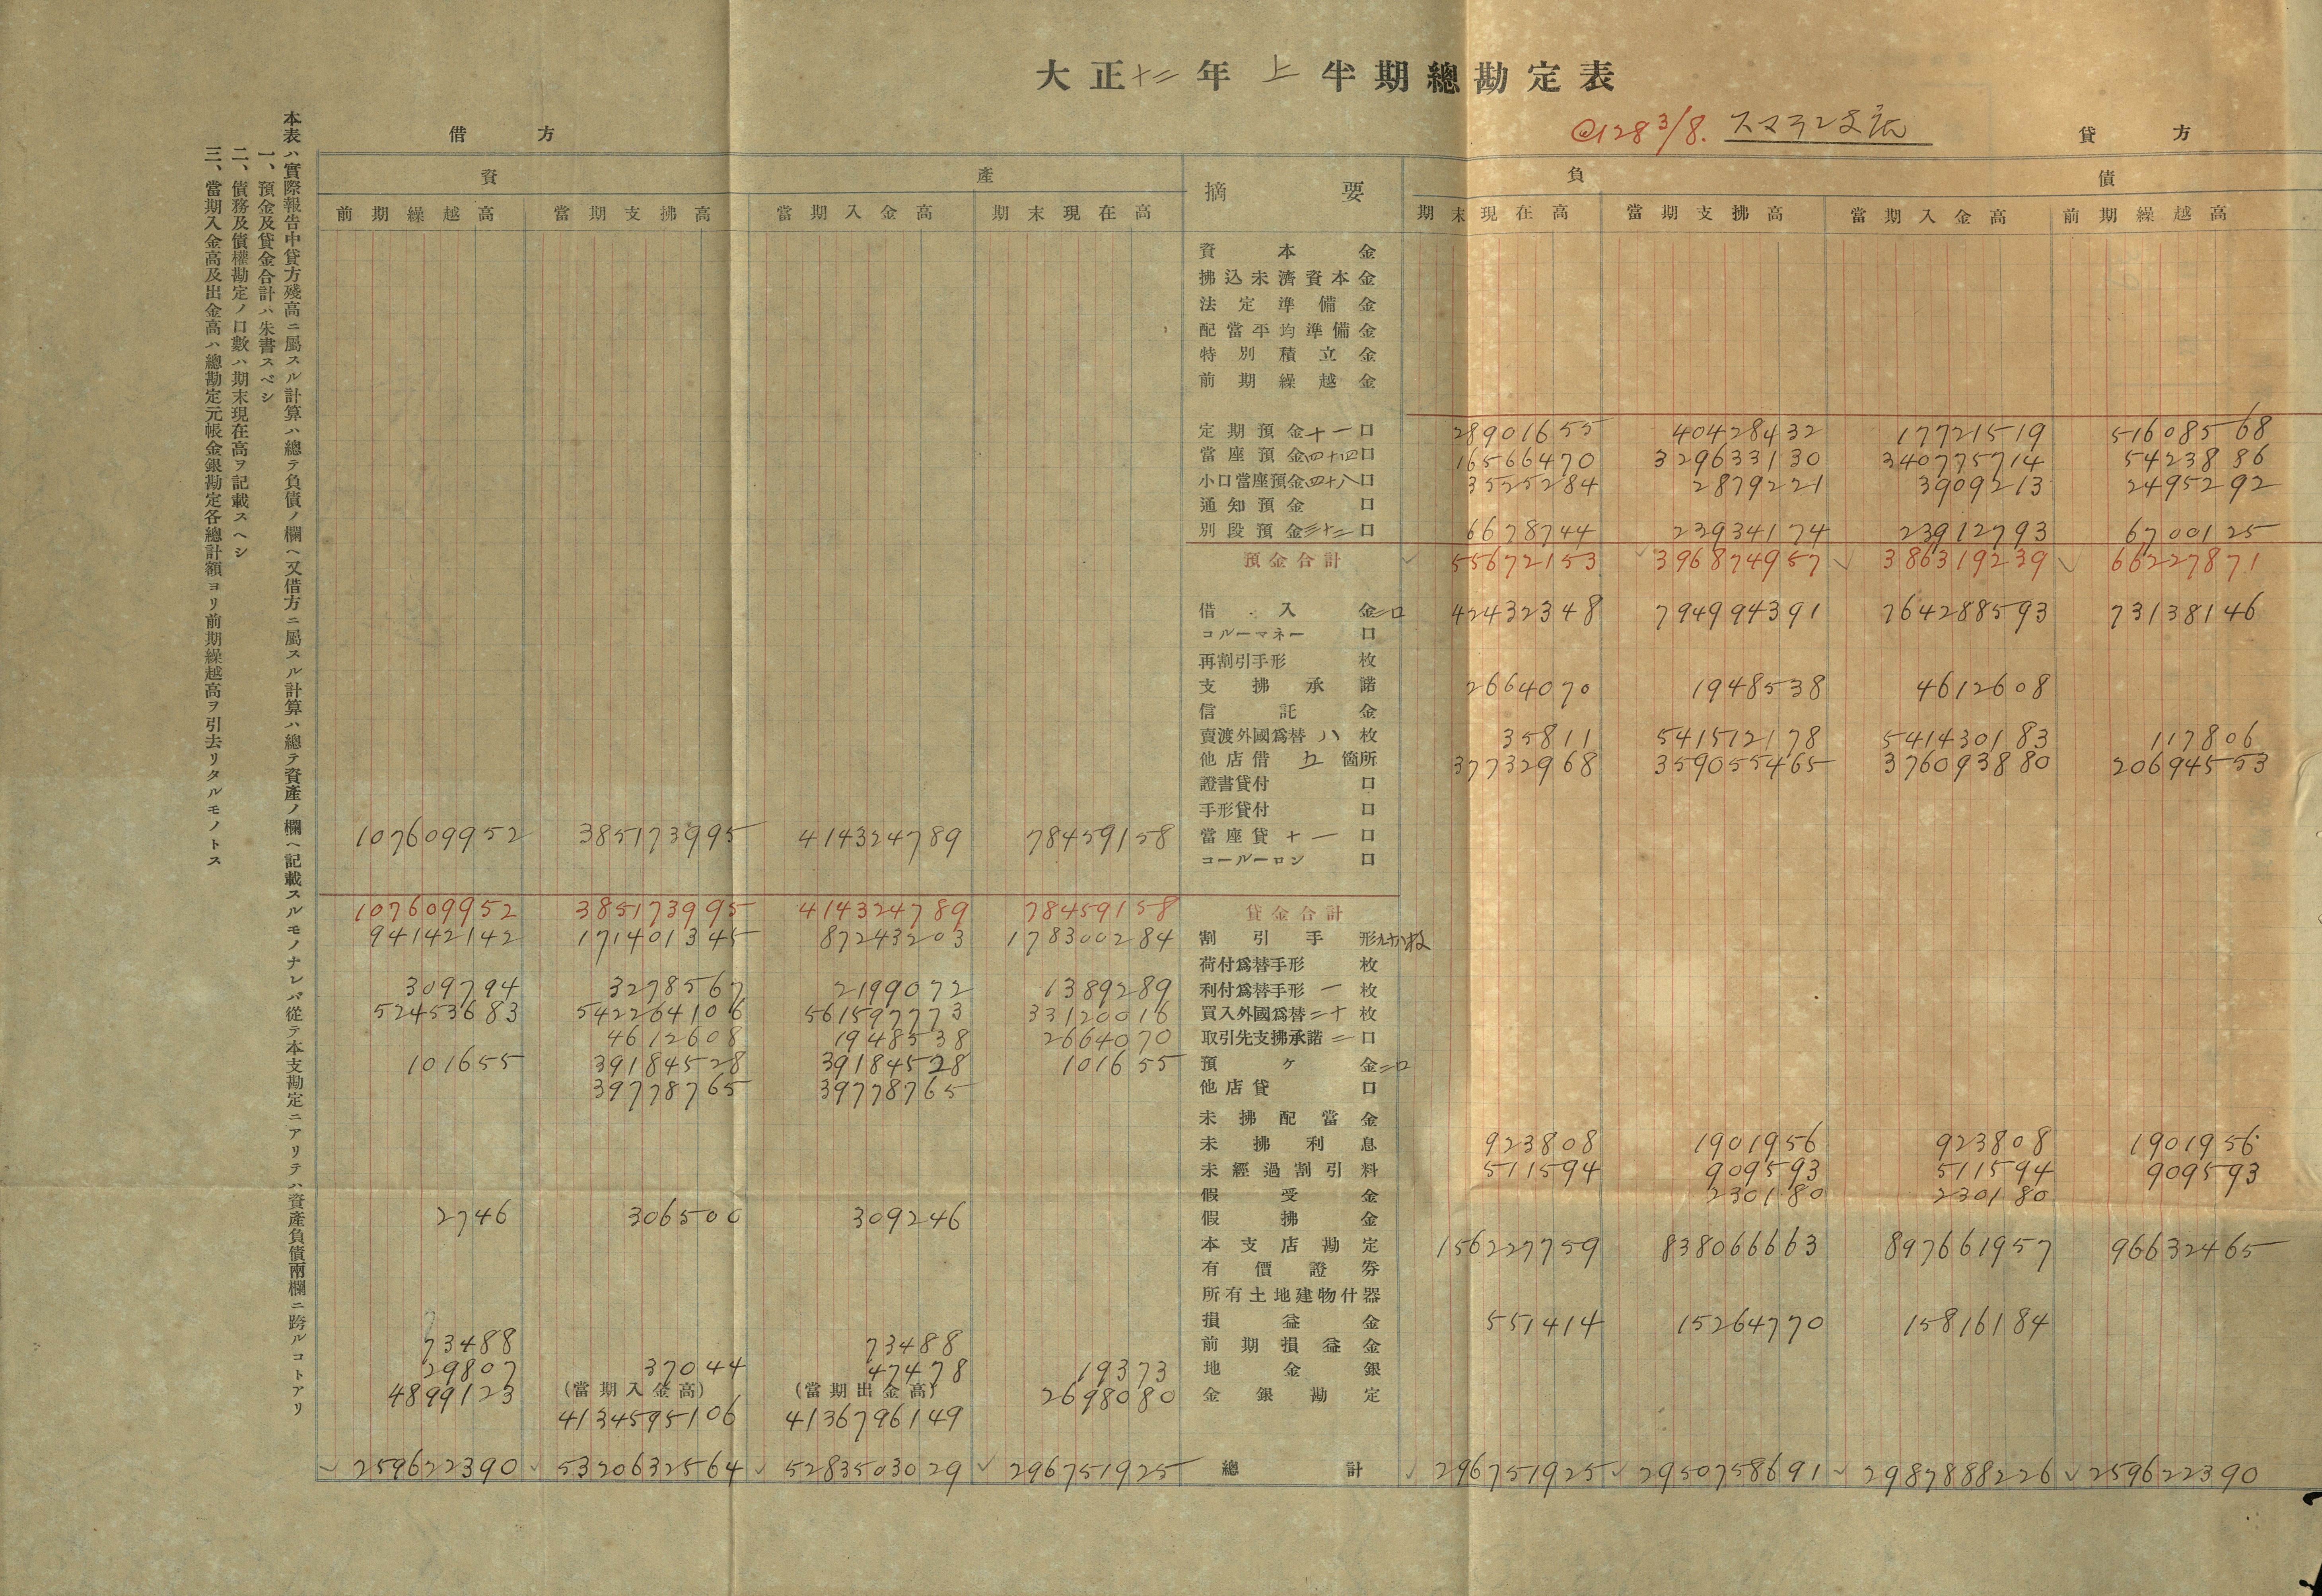 大正十二年上半期總勘定表
@128 3/8. スマラン支店
借方 貸方
資產 摘要 負債
前期繰越高 當期支拂高 當期入金高 期末現在高 期末現在高 當期支拂高 當期入金高 前期繰越高
資本金
拂込未濟資本金
法定準備金
配當平均準備金
特別積立金
前期繰越金
定期預金十一口 28901655 40428432 17721519 51608568
當座預金四十四口 16566470 329633130 340775714 5423886
小口當座預金四十八口 3525284 2879221 3909213 2495292
通知預金 口
別段預金三十二口 6678744 23934174 23912793 6700125
預金合計 55672153 396874957 386319239 66227871
借入金二口 42432348 794994391 764288593 73138146
コルーマネー 口
再割引手形 枚
支拂承諾 2664070 1948538 4612608
信託金
賣渡外國爲替 八 枚 35811 541512178 541430183 117806
他店借 五 箇所 37732968 359055465 376093880 20694553
證書貸付 口
手形貸付 口
107609952 385173995 414324789 78459158 當座貸 十一 口
コールーロン 口
107609952 385173995 414324789 78459158 貸金合計
94142142 171401345 87243203 178300284 割引手形 枚
荷付爲替手形 枚
309794 3278567 2199072 1389289 利付爲替手形 一 枚
52453683 542264106 561597773 33120016 買入外國爲替 二十 枚
4612608 1948538 2664070 取引先支拂承諾 二 口
101655 39184528 39184528 101655 預ケ金二口
39778765 39778765 他店貸 口
未拂配當金
未拂利息 923808 1901956 923808 1901956
未經過割引料 511594 909593 511594 909593
假受金 230180 230180
2746 306500 309246 假拂金
本支店勘定 156227759 838066663 897661957 96632465
有價證券
所有土地建物什器
損益金 551414 15264770 15816184
73488 73488 前期損益金
29807 37044 47478 19373 地金銀
4899123 (當期入金高) (當期出金高) 2698080 金銀勘定
4134595106 4136796149
259622390 5320632564 5283503029 296751925 總計 296751925 2950758691 2987888226 259622390
本表ハ實際報告中貸方殘高ニ屬スル計算ハ總テ負債ノ欄ヘ又借方ニ屬スル計算ハ總テ資產ノ欄ヘ記載スルモノナレバ從テ本支勘定ニアリテハ資產負債兩欄ニ跨ルコトアリ
一、預金及貸金合計ハ朱書スベシ
二、債務及債權勘定ノ口數ハ期末現在高ヲ記載スヘシ
三、當期入金高及出金高ハ總勘定元帳金銀勘定各總計額ヨリ前期繰越高ヲ引去リタルモノトス